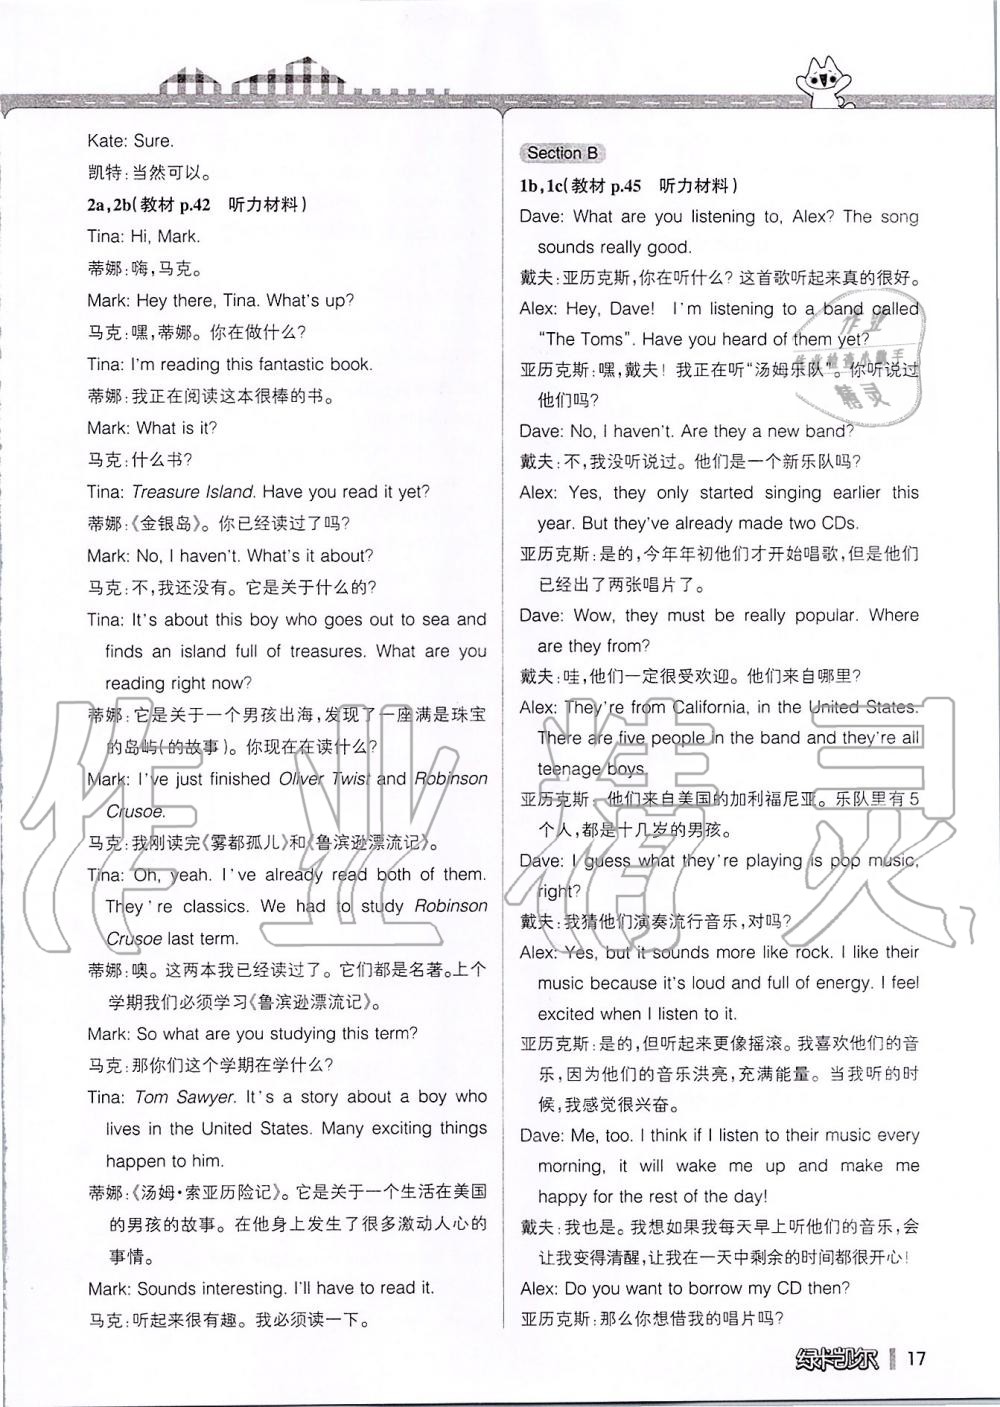 Kate: Sure.
凯特:当然可以。
2a,2b(教材 p.42 听力材料)
Tina: Hi, Mark.
蒂娜:嗨,马克。
Mark: Hey there, Tina. What's up?
马克:嘿,蒂娜。你在做什么?
Tina: I'm reading this fantastic book.
蒂娜:我正在阅读这本很棒的书。
Mark: What is it?
马克:什么书?
Tina: Treasure Island. Have you read it yet?
蒂娜:《金银岛》。你已经读过了吗?
Mark: No, I haven't. What's it about?
马克:不,我还没有。它是关于什么的?
Tina: It's about this boy who goes out to sea and
finds an island full of treasures. What are you
reading right now?
蒂娜:它是关于一个男孩出海,发现了一座满是珠宝
的岛屿(的故事)。你现在在读什么?
Mark: I've just finished Oliver Twist and Robinson
Crusoe.
马克:我刚读完《雾都孤儿》和《鲁滨逊漂流记》。
Tina: Oh, yeah. I've already read both of them.
They're classics. We had to study Robinson
Crusoe last term.
蒂娜:噢。这两本我已经读过了。它们都是名著。上个
学期我们必须学习《鲁滨逊漂流记》。
Mark: So what are you studying this term?
马克:那你们这个学期在学什么?
Tina: Tom Sawyer. It's a story about a boy who
lives in the United States. Many exciting things
happen to him.
蒂娜:《汤姆·索亚历险记》。它是关于一个生活在美国
的男孩的故事。在他身上发生了很多激动人心的
事情。
Mark: Sounds interesting. I'll have to read it.
马克:听起来很有趣。我必须读一下。
Section B
1b,1c(教材 p.45 听力材料)
Dave: What are you listening to, Alex? The song
sounds really good.
戴夫:亚历克斯,你在听什么?这首歌听起来真的很好。
Alex: Hey, Dave! I'm listening to a band called
"The Toms". Have you heard of them yet?
亚历克斯:嘿,戴夫!我正在听“汤姆乐队”。你听说过
他们吗?
Dave: No, I haven't. Are they a new band?
戴夫:不,我没听说过。他们是一个新乐队吗?
Alex: Yes, they only started singing earlier this
year. But they've already made two CDs.
亚历克斯:是的,今年年初他们才开始唱歌,但是他们
已经出了两张唱片了。
Dave: Wow, they must be really popular. Where
are they from?
戴夫:哇,他们一定很受欢迎。他们来自哪里?
Alex: They're from California, in the United States.
There are five people in the band and they're all
teenage boys.
亚历克斯:他们来自美国的加利福尼亚。乐队里有5
个人,都是十几岁的男孩。
Dave: I guess what they're playing is pop music,
right?
戴夫:我猜他们演奏流行音乐,对吗?
Alex: Yes, but it sounds more like rock. I like their
music because it's loud and full of energy. I feel
excited when I listen to it.
亚历克斯:是的,但听起来更像摇滚。我喜欢他们的音
乐,因为他们的音乐洪亮,充满能量。当我听的时
候,我感觉很兴奋。
Dave: Me, too. I think if I listen to their music every
morning, it will wake me up and make me
happy for the rest of the day!
戴夫:我也是。我想如果我每天早上听他们的音乐,会
让我变得清醒,让我在一天中剩余的时间都很开心!
Alex: Do you want to borrow my CD then?
亚历克斯:那么你想借我的唱片吗?
绿卡凯尔 17
作业精灵
作业
作业检查小助手
精灵